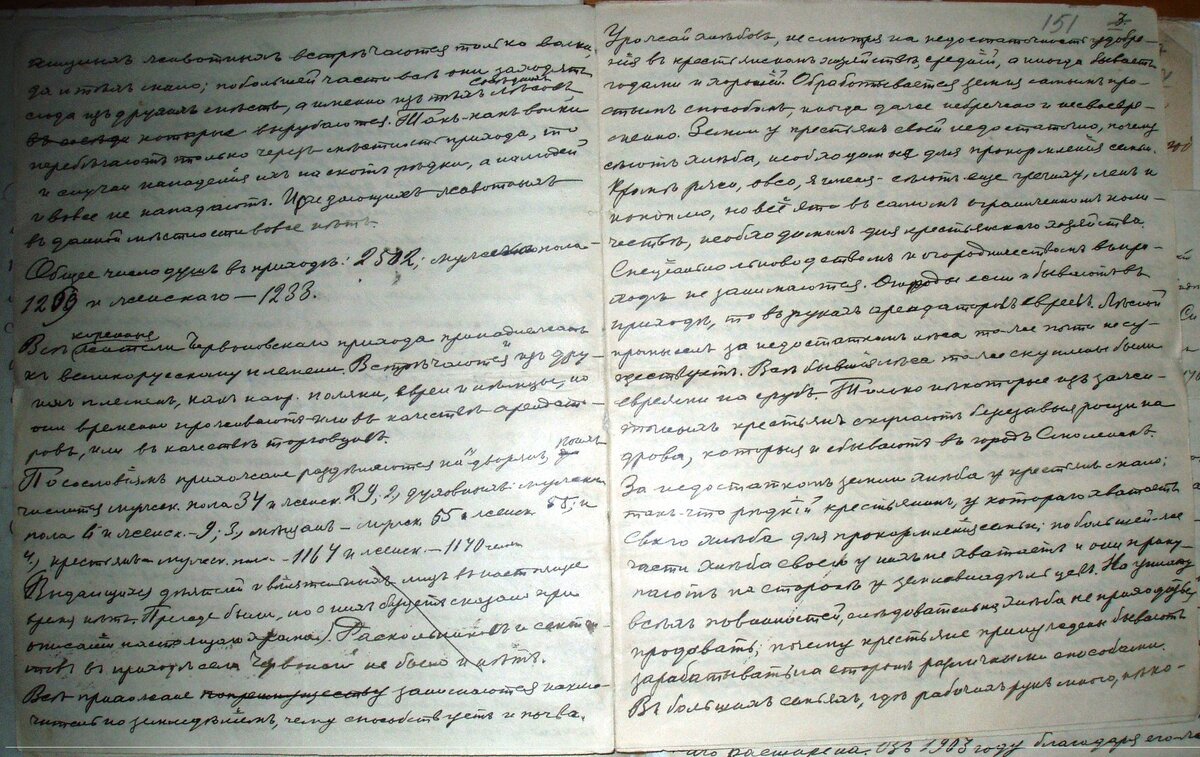 хищныхъ животныхъ встрѣчаются только волки,
да и тѣхъ мало; по большей части всѣ они заходятъ
сюда изъ другихъ мѣстъ, а именно изъ тѣхъ лѣсовъ
совсѣмъ
которые вырубаются. Такъ-какъ волки
перебѣгаютъ только черезъ мѣстность прихода, то
и случаи нападенія ихъ на скотъ рѣдки, а на людей
и вовсе не нападаютъ. животныхъ
въ данной мѣстности вовсе нѣтъ.
Общее число душъ въ приходѣ: 2502; мужского пола –
и женскаго – 1233.
коренные
Всѣ жители Червоновскаго прихода принадлежатъ
къ великорусскому племени. Встрѣчаются и изъ дру-
гихъ племенъ, какъ напр. поляки, евреи и нѣмцы, но
они временно проживаютъ или въ качествѣ арендато-
ровъ, или въ качествѣ торговцевъ.
По сословіямъ прихожане раздѣляются на дворянъ,
числится мужск. пола 34 и женск. 29; 2, духовныхъ: мужского
пола 6 и женск. – 9; 3, мѣщанъ – мужск 55 женск 55; и
4, крестьянъ мужск. пола – 1164 и женск – 1140
Выдающихся дѣятелей и вліятельныхъ лицъ въ настоящее
время нѣтъ. Прежде были, но о нихъ будетъ сказано при
описаніи настоящаго храма). Раскольниковъ и сектан-
товъ въ приходѣ села Червонаго не было и нѣтъ.
Всѣ прихожане по преимуществу занимаются исклю-
чительно земледѣліемъ, чему способствуетъ и почва.
151
3.
Урожай хлѣбовъ, несмотря на недостаточность удобре-
нія въ крестьянскомъ хозяйствѣ, средній, а иногда бываетъ
годами и хорошій. Обработывается земля самымъ про-
стымъ способомъ, иногда даже небрежно и несвоевре-
менно. Земли у крестьянъ своей недостаточно, почему
сѣютъ хлѣба, необходимые для прокормленія семьи.
Кромѣ ржи, овса, ячменя – сѣютъ еще гречиху, ленъ и
коноплю, но всё это въ самомъ ограниченномъ коли-
чествѣ, необходимомъ для крестьянскаго хозяйства.
Спеціально льноводствомъ и огородничествомъ въ при-
ходѣ не занимаются. Огороды если и бываютъ въ
приходѣ, то въ рукахъ арендаторовъ евреевъ. Лѣсной
промыселъ за недостаткомъ лѣса тоже почти не су-
ществуетъ. Всѣ бывшіе лѣса тоже скуплены были
евреями на срубъ. Только нѣкоторые изъ зажи-
точныхъ крестьянъ скупаютъ березовыя рощи на
дрова, которыя и сбываютъ въ городъ Смоленскъ.
За недостаткомъ земли хлѣба у крестьянъ мало;
такъ-что рѣдкій крестьянинъ, у котораго хватаетъ
своего хлѣба для прокормленія семьи; по большей-же
части хлѣба своего у нихъ не хватаетъ и они поку-
паютъ на сторонѣ у землевладѣльцевъ. На уплату
всѣхъ повинностей, слѣдовательно, хлѣба не приходится
продавать; почему крестьяне принуждены бываютъ
зарабатывать на сторонѣ различными способами.
Въ большихъ семьяхъ, гдѣ рабочихъ рукъ много, нѣко-
1903 году благодаря его